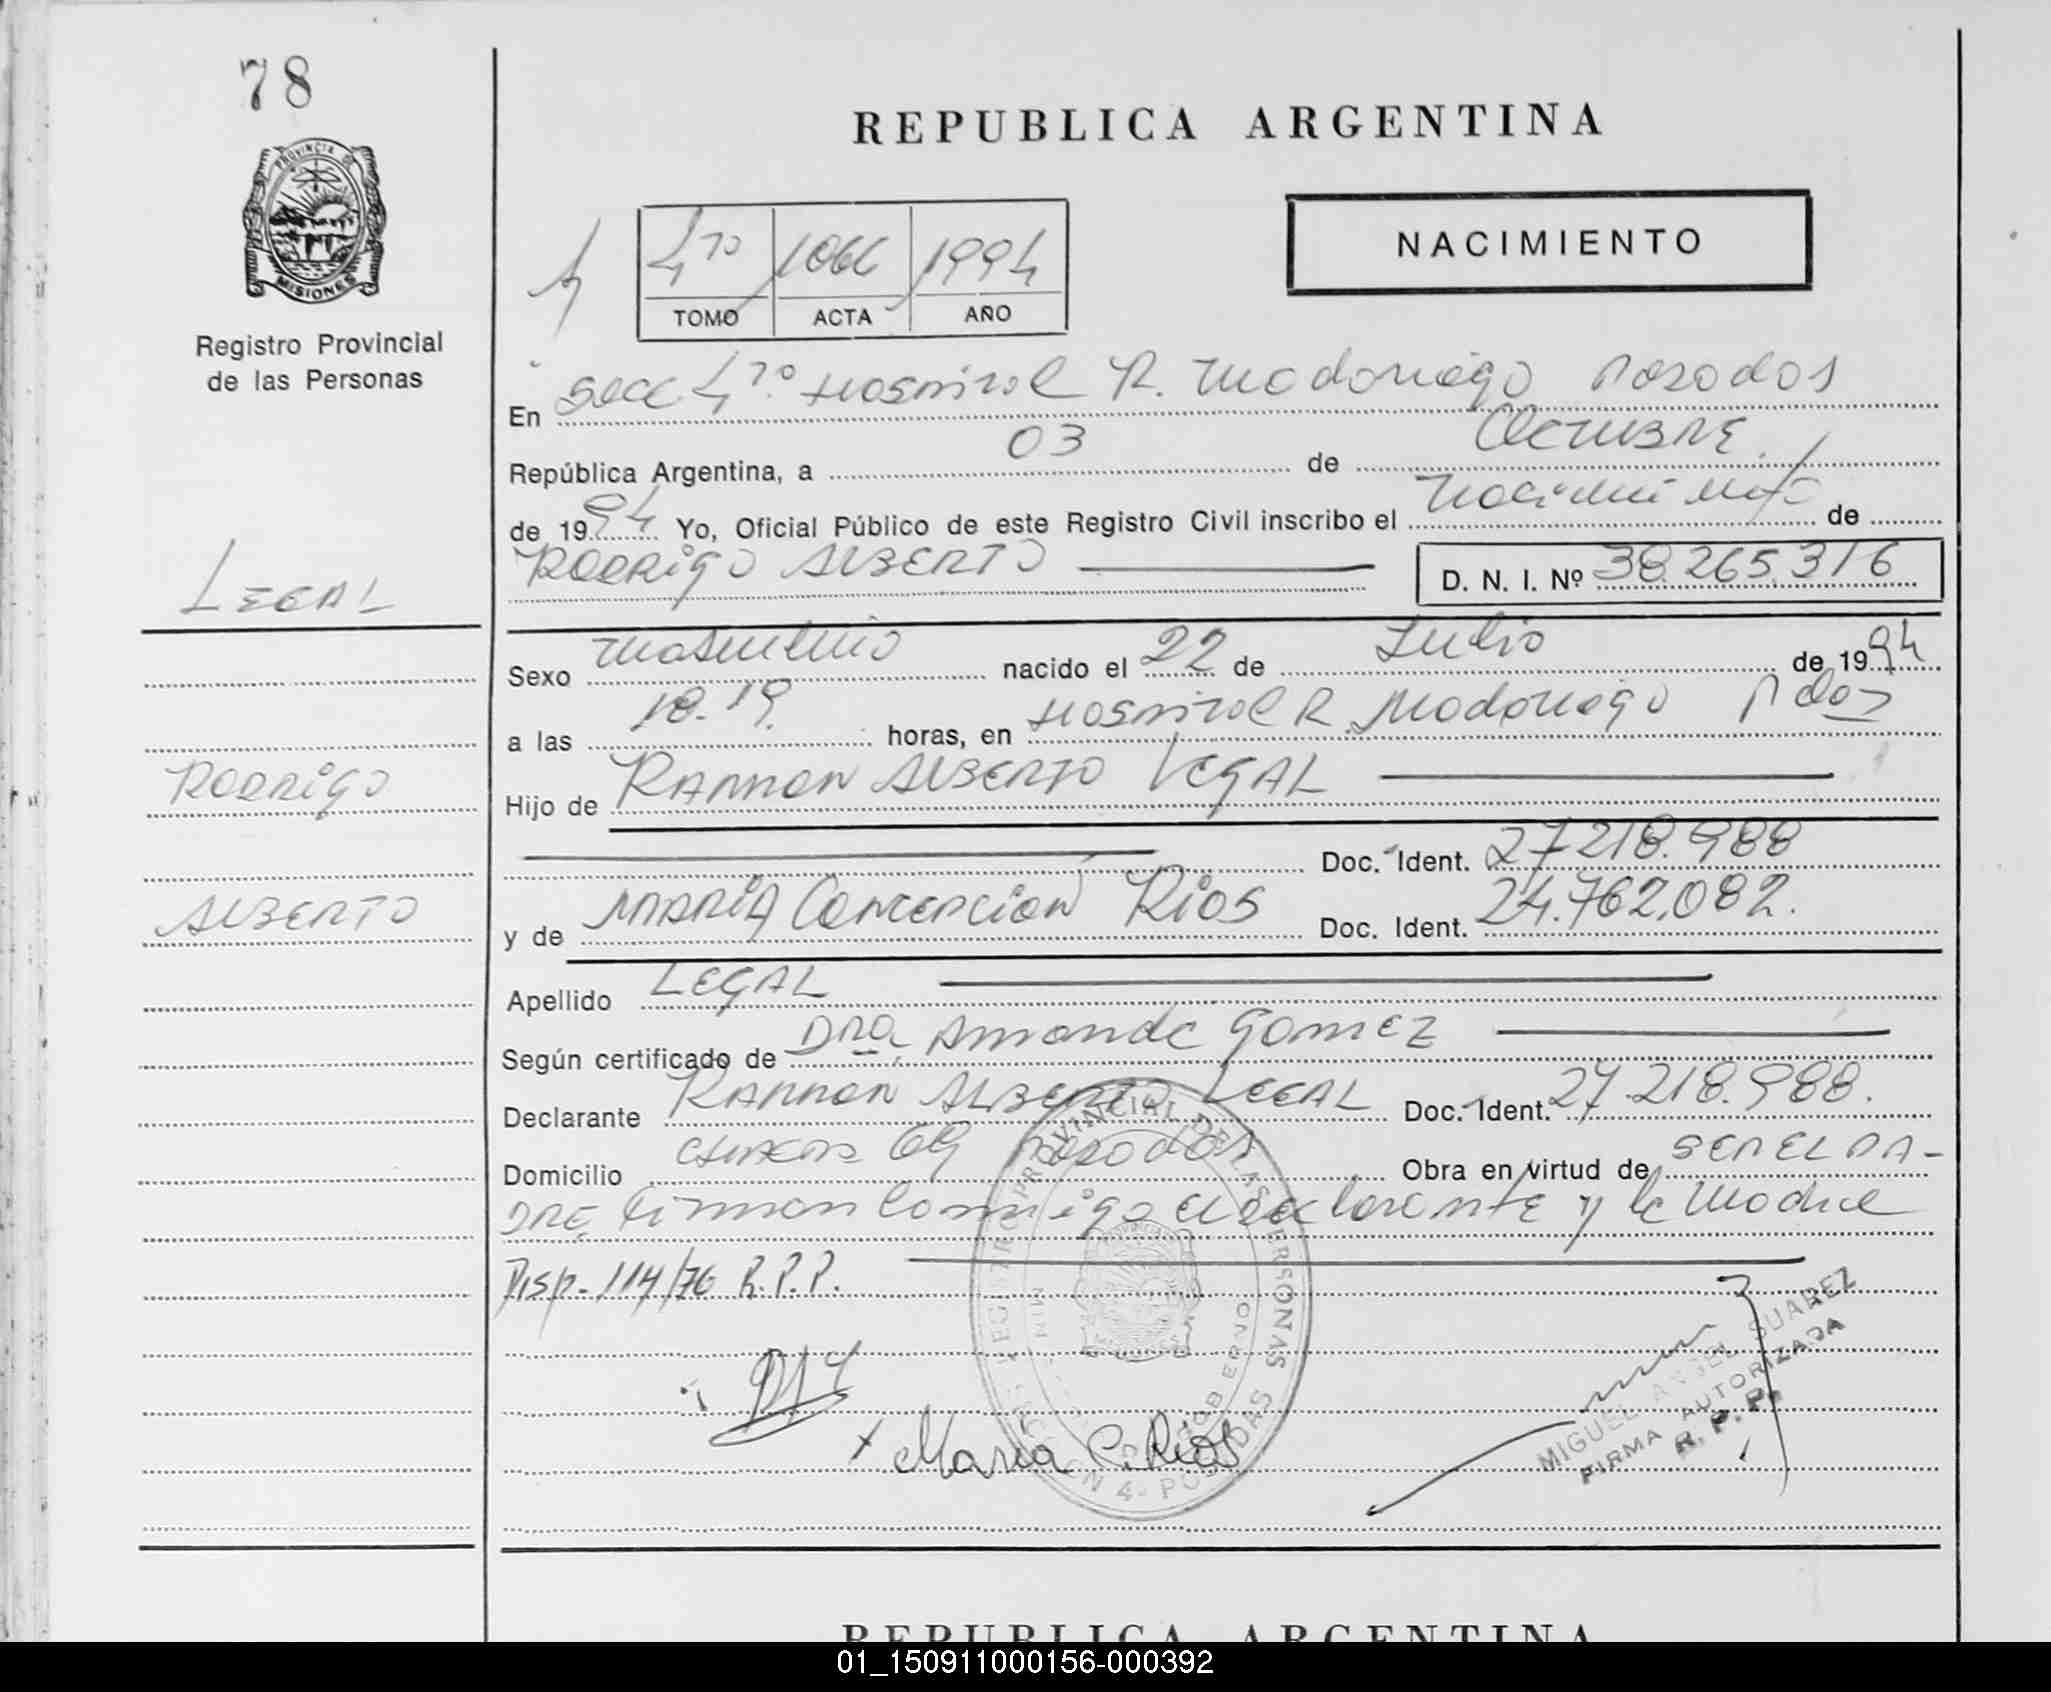 78
REPUBLICA ARGENTINA
PROVINCIA DE
MISIONES
Registro Provincial
de las Personas
4to 1066 1994
TOMO ACTA AÑO
NACIMIENTO
En Secc 4to. Hospital R. Madariaga Posadas
República Argentina, a 03 de Octubre
de 1994 Yo, Oficial Público de este Registro Civil inscribo el Nacimiento de
Rodrigo Alberto
D. N. I. Nº 38.265.316
LEGAL
Rodrigo
Alberto
Sexo masculino nacido el 22 de Julio de 1994
a las 18.19 horas, en Hospital R. Madariaga Pdas
Hijo de Ramon Alberto Legal
Doc. Ident. 27.218.988
y de Maria Concepcion Rios Doc. Ident. 24.762.082.
Apellido LEGAL
Según certificado de Dra. Amanda Gomez
Declarante Ramon Alberto Legal Doc. Ident. 27.218.988.
Domicilio 69 Posadas Obra en virtud de ser el pa-
dre firman conmigo el declarante y la madre
Disp. 114/76 R.P.P.
REGISTRO PROVINCIAL DE LAS PERSONAS
SECCION 4- POSADAS
GOBIERNO
MISIONES
x Maria C. Rios
MIGUEL ANGEL SUAREZ
FIRMA AUTORIZADA
R. P. P.
REPUBLICA ARGENTINA
01_150911000156-000392